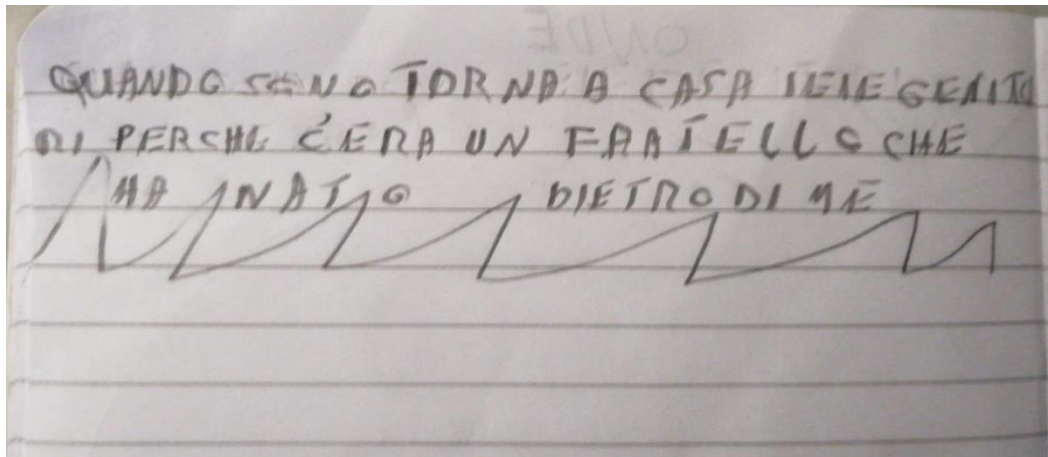 QUANDO SONO TORNA A CASA IEIE GENITO
RI PERCHE C'ERA UN FRATELLO CHE
HA NATO DIETRO DI ME